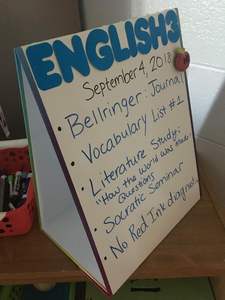 ENGLISH 3
September 4, 2018
Bellringer: Journal
Vocabulary List #1
Literature Study:
"How the World was made"
Questions
Socratic Seminar
No Red Ink diagnos